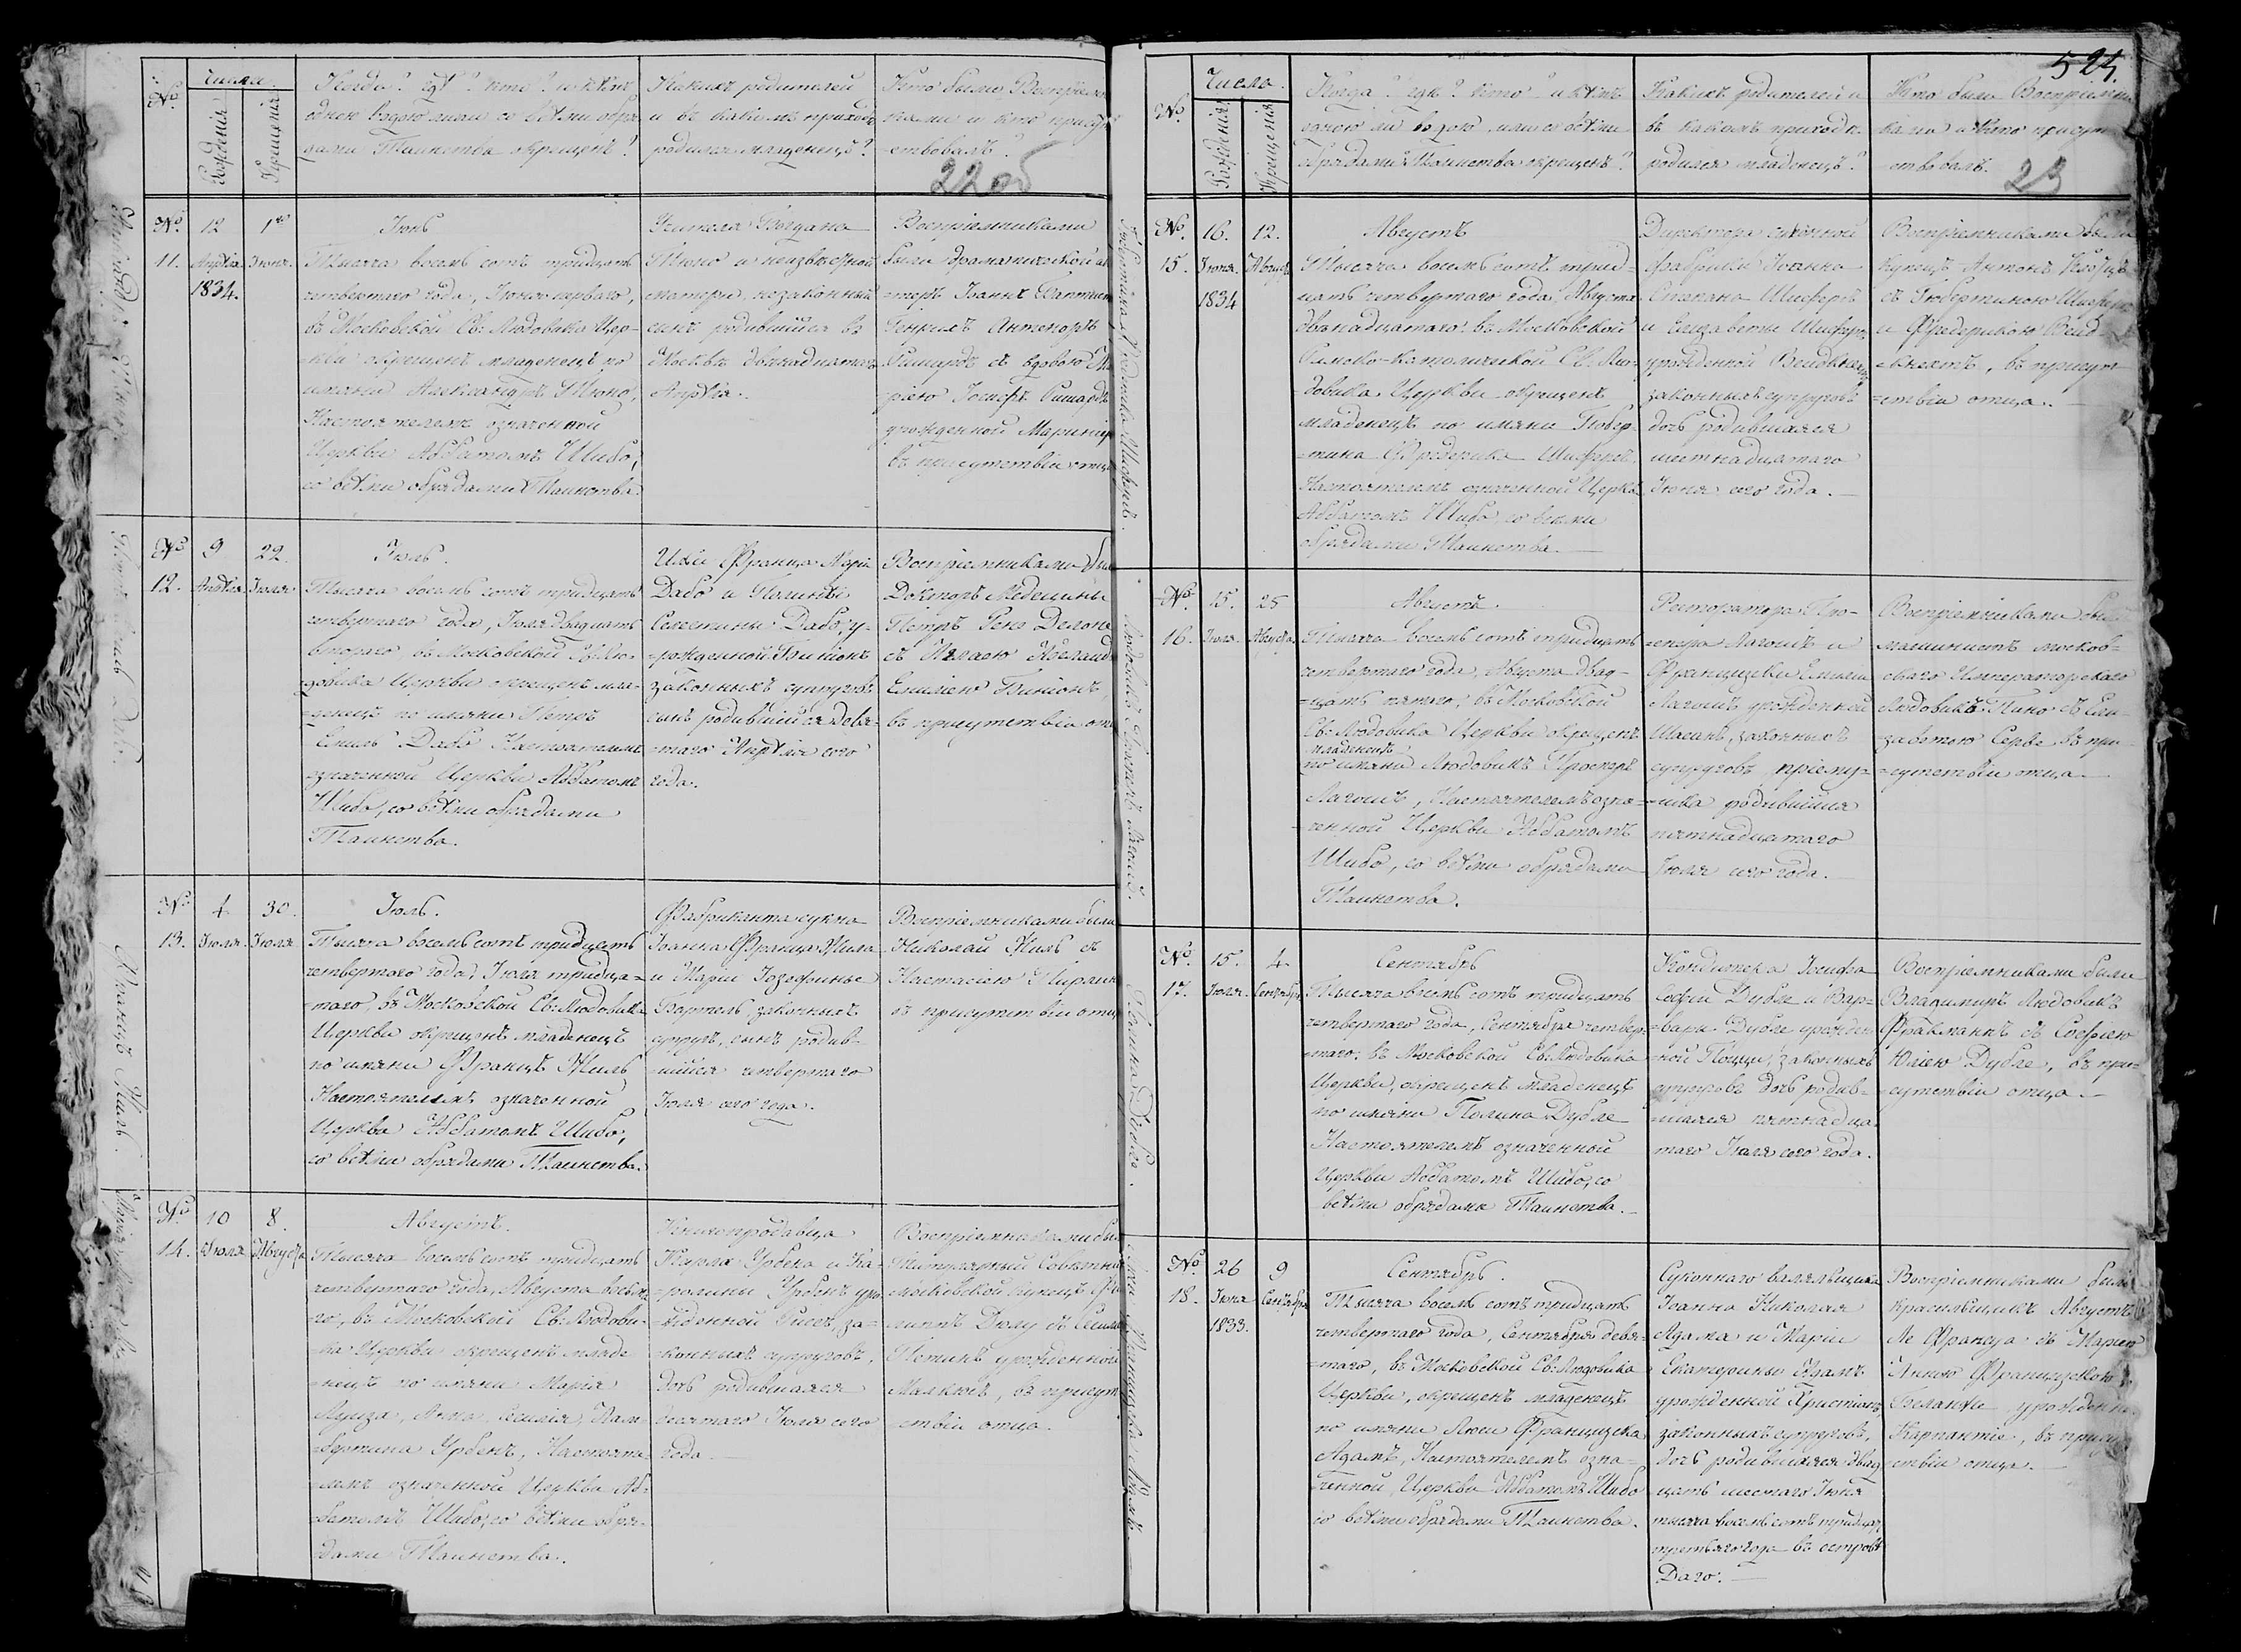 №
числа.
Рожденія
Крещенія
Когда? гдѣ? кто? и кѣмъ
однею водою или со всѣми обря-
дами Таинства окрещенъ?
Какихъ родителей
и въ какомъ приходѣ
родился младенецъ?
Кто были Воспріем-
никами и кто присут-
ствовалъ?
22 об
№
11.
12
Апрѣля
1834.
1го
Іюня.
Іюнь
Тысяча восемь сотъ тридцать
четвертаго года, Іюня перваго,
въ Московской Св: Людовика Цер-
кви окрещенъ младенецъ по
имяни Александръ Тюно,
Настоятелемъ означенной
Церкви Аббатомъ Шибо,
со всѣми обрядами Таинства.
Учителя Богдана
Тюно и неизвѣстной
матери, незаконный
сынъ родившійся въ
Москвѣ двѣнадцатаго
Апрѣля.
Воспріемниками
были драматической ак-
теръ Іоаннъ Баптистъ
Генрихъ Антеноръ
Ришардъ съ вдовою Ма-
ріею Іосифъ Ришардъ
урожденной
въ присутствіи отца
№
12.
9
Апрѣля
22.
Іюля
Іюль.
Тысяча восемь сотъ тридцать
четвертаго года, Іюля двадцать
втораго въ Московской Св: Лю-
довика Церкви окрещенъ мла-
денецъ по имяни Петръ
Емиль Дабо Настоятелемъ
означенной Церкви Аббатомъ
Шибо, со всѣми обрядами
Таинства.
Франца Марія
Дабо и Полины
Селестины Дабо, у-
рожденной Биніонъ
законныхъ супруговъ
сынъ родившійся девя-
таго Апрѣля сего
года.
Воспріемниками были
Докторъ Медецины
Петръ Рене Делоне
съ Аглаею
Емиліею Биніонъ,
въ присутствіи отца
№
13.
4
Іюля.
30.
Іюля
Іюль.
Тысяча восемь сотъ тридцать
четвертаго года, Іюля тридца-
таго, въ Московской Св: Людовика
Церкви окрещенъ младенецъ
по имяни Францъ Жиль
Настоятелемъ означенной
Церкви Аббатомъ Шибо,
со всѣми обрядами Таинства.
Фабриканта сукна
Іоанна Франца Жиля
и Маріи Іозефины
Бартель, законныхъ
супругъ, сынъ родив-
шійся четвертаго
Іюля сего года.
Воспріемниками были
Николай Жиль съ
Настасіею
въ присутствіи отца
Францъ Жиль.
№
14.
10
Іюля
8.
Августа
Августъ.
Тысяча восемь сотъ тридцать
четвертаго года, Августа восьма-
го, въ Московской Св: Людови-
ка Церкви окрещенъ младе-
нецъ по имяни Марія
Луиза, Анна, Емилія, Лам-
бертина Урбенъ, Настояте-
лемъ означенной Церкви Аб-
батомъ Шибо, со всѣми обря-
дами Таинства.
Книгопродавца
Карла Урбена и Ка-
ролины Урбенъ уро-
жденной Рисъ, за-
конныхъ супруговъ,
дочь родившаяся
десятаго Іюля сего
года.
Воспріемниками были
Титулярный Совѣтникъ
Московской купецъ Фи-
липпъ Дюлу съ
Петинъ урожденной
въ присут-
ствіи отца.
№
Число.
Рожденія
Крещенія
Когда? гдѣ? кто? и кѣмъ
одною ли водою или со всѣми
обрядами Таинства окрещенъ?
Какихъ родителей и
въ какомъ приходѣ
родился младенецъ?
Кто были Воспріемни-
ками и кто присут-
ствовалъ.
23
№
15.
16.
Іюня.
1834
12.
Августа
Августъ
Тысяча восемь сотъ трид-
цать четвертаго года, Августа
двѣнадцатаго въ Московской
Римско-католической Св: Лю-
довика Церкви окрещенъ
младенецъ по имяни Гюбер-
тина Фредерика Шиферъ
Настоятелемъ означенной Церкви
Аббатомъ Шибо, со всѣми
обрядами Таинства.
Директора суконной
фабрики Іоанна
Степана Шиферъ
и Елизаветы Шиферъ
урожденной Вейдкнехтъ
законныхъ супруговъ
дочь родившаяся
шестнадцатаго
Іюня сего года.
Воспріемниками были
купецъ Антонъ
съ Гюбертиною Шиферъ
и Фредерикою Вейд-
кнехтъ, въ присут-
ствіи отца.
№
16.
15.
Іюля.
25
Августа
Августъ.
Тысяча восемь сотъ тридцать
четвертаго года, Августа двад-
цать пятаго, въ Московской
Св: Людовика Церкви окрещенъ
младенецъ
по имяни Людовикъ Просперъ
Лагошъ, Настоятелемъ озна-
ченной Церкви Аббатомъ
Шибо, со всѣми обрядами
Таинства.
Ресторатора Про-
спера Лагошъ и
Францизски Емиліи
Лагошъ урожденной
законныхъ
супруговъ
родившійся
пятнадцатаго
Іюля сего года.
Воспріемниками были
машинистъ москов-
скаго Императорскаго
Людовикъ Пино съ Ели-
заветою Серве въ при-
сутствіи отца
Людовикъ Просперъ Лагошъ.
№
17.
15.
Іюля.
4.
Сентября
Сентябрь
Тысяча восемь сотъ тридцать
четвертаго года, Сентября четвер-
таго, въ Московской Св: Людовика
Церкви, окрещенъ младенецъ
по имяни Полина Дубле
Настоятелемъ означенной
Церкви Аббатомъ Шибо, со
всѣми обрядами Таинства.
Кондитера Іосифа
Софіи Дубле и Вар-
вары Дубле урожден-
ной Поцци, законныхъ
супруговъ дочь родив-
шаяся пятнадца-
таго Іюля сего года.
Воспріемниками были
Владимиръ Людовикъ
Фракманъ съ Софіею
Юліею Дубле, въ при-
сутствіи отца.
Полина Дубле.
№
18.
26
Іюня
1833.
9
Сентября
Сентябрь.
Тысяча восемь сотъ тридцать
четвертаго года, Сентября девя-
таго, въ Московской Св: Людовика
Церкви, окрещенъ младенецъ
по имяни Люси Францизска
Адамъ, Настоятелемъ озна-
ченной Церкви Аббатомъ Шибо
со всѣми обрядами Таинства.
Суконнаго валяльщика
Іоанна Николая
Адама и Маріи
Екатерины Адамъ
урожденной Христіанъ,
законныхъ супруговъ,
дочь родившаяся двад-
цать шестаго Іюня
тысяча восемь сотъ тридцать
третьяго года въ островѣ
Даго.
Воспріемниками были
красильщикъ Августъ
Ле Франсуа съ Маріею
Анною Францизскою
Беланже урожденной
Карпантіе, въ присут-
ствіи отца.